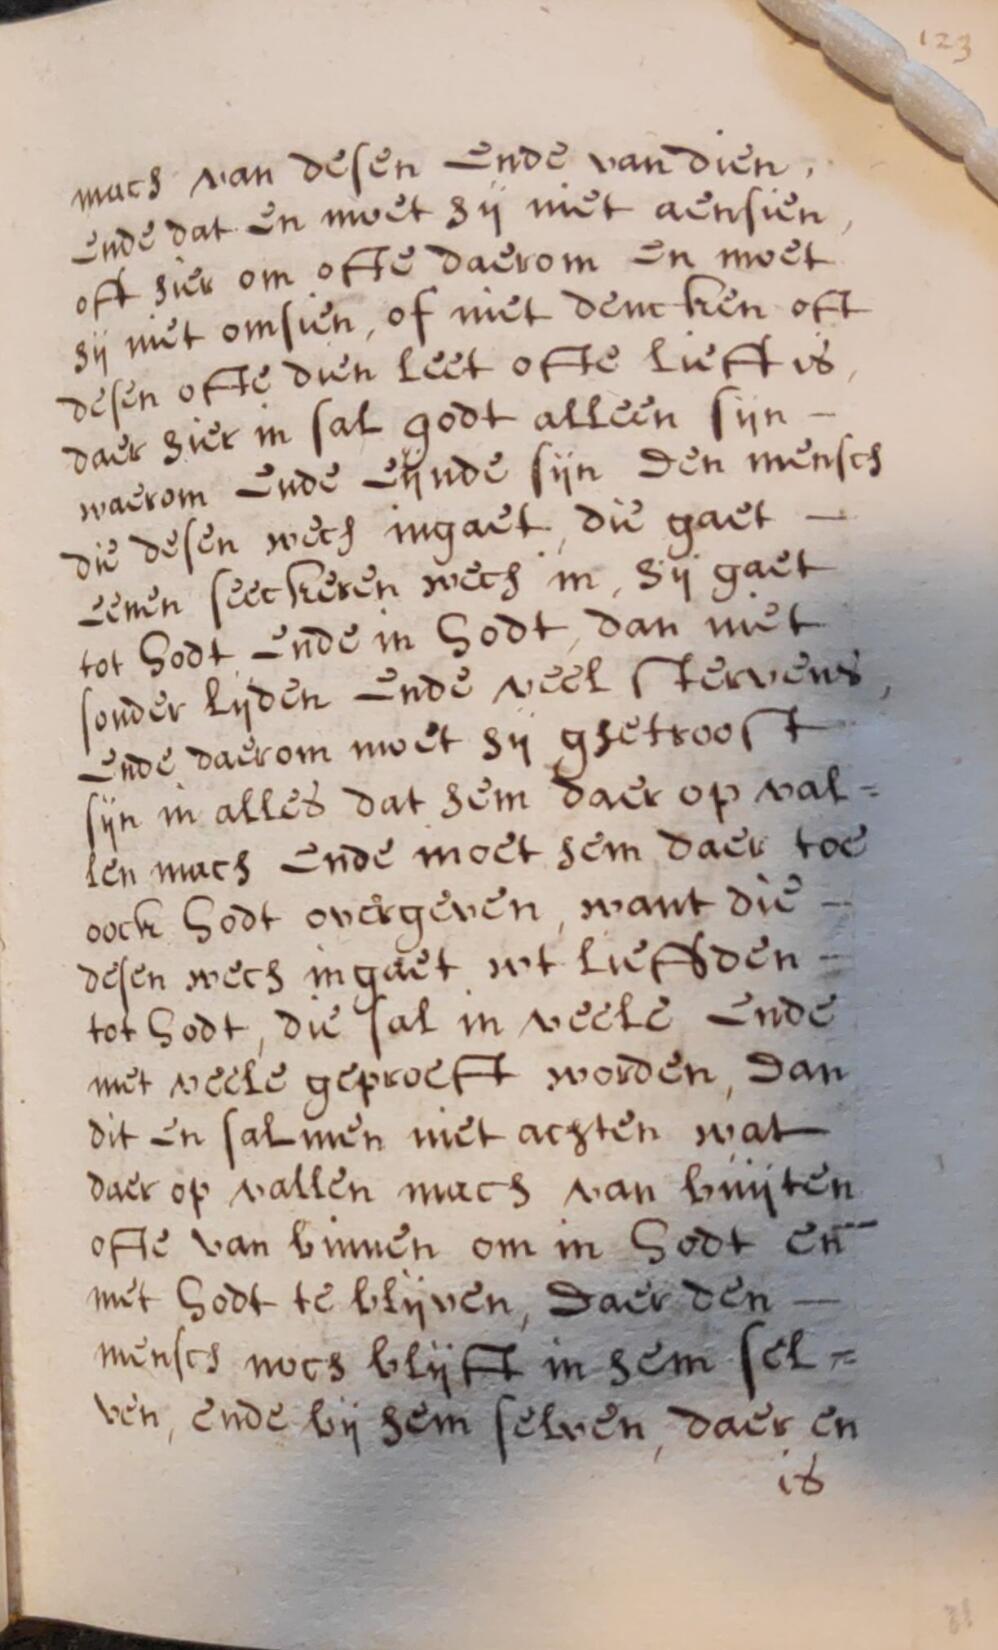 123
mach van desen Ende van dien,
Ende dat En moet hij niet aensien,
oft hier om ofte daerom En moet
hij niet omsien, of niet dencken oft
desen ofte dien leet ofte liefft is,
daer hier in sal godt alleen sijn –
waerom Ende Eijnde sijn Den mensch
die desen wech ingaet, die gaet –
Eenen seeckeren wech in, hij gaet
tot Godt Ende in Godt, dan niet
sonder lijden Ende veel stervens,
Ende daerom moet hij ghetroost
sijn in alles dat hem daer op val=
len mach Ende moet hem daer toe
oock Godt overgeven, want die –
desen wech ingaet wt lieffden –
tot Godt, die sal in veele Ende
met veele geproefft worden, Dan
dit En salmen niet achten wat
daer op vallen mach van buijten
ofte van binnen om in Godt en̄
met Godt te blijven, Daer den –
mensch noch blijfft in hem sel=
ven, ende bij hem selven, daer en
is